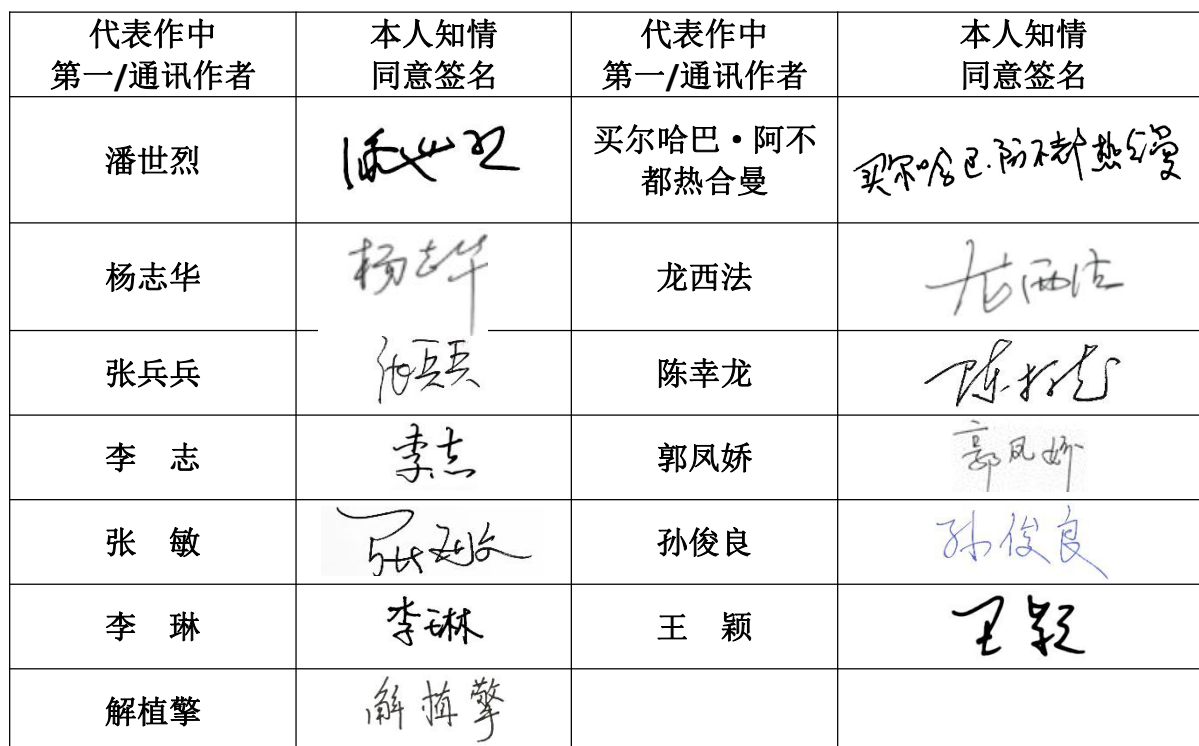 代表作中 本人知情 代表作中 本人知情
第一/通讯作者 同意签名 第一/通讯作者 同意签名
潘世烈 潘世烈 买尔哈巴·阿不都热合曼 买尔哈巴·阿不都热合曼
杨志华 杨志华 龙西法 龙西法
张兵兵 张兵兵 陈幸龙 陈幸龙
李 志 李志 郭凤娇 郭凤娇
张 敏 张敏 孙俊良 孙俊良
李 琳 李琳 王 颖 王颖
解植擎 解植擎